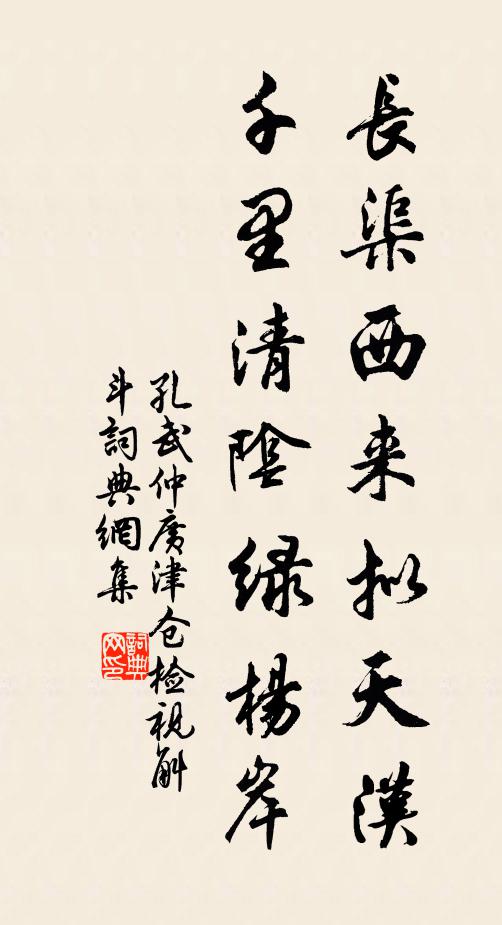 長渠西来拟天漢
千里清陰緑楊岸
孔武仲廣津仓檢視斛
斗詞典網集
詞典
网印